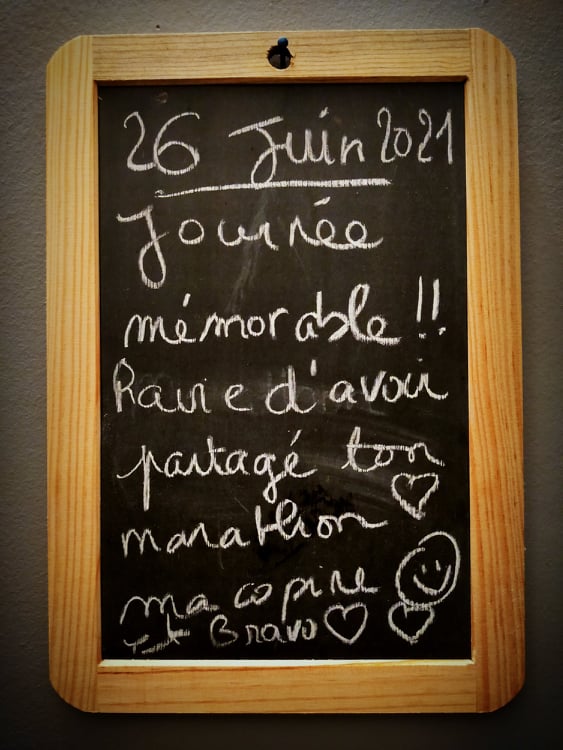 26 Juin 2021
Journée
mémorable !!
Ravie d'avoir
partagé ton
marathon
ma copine
Et Bravo